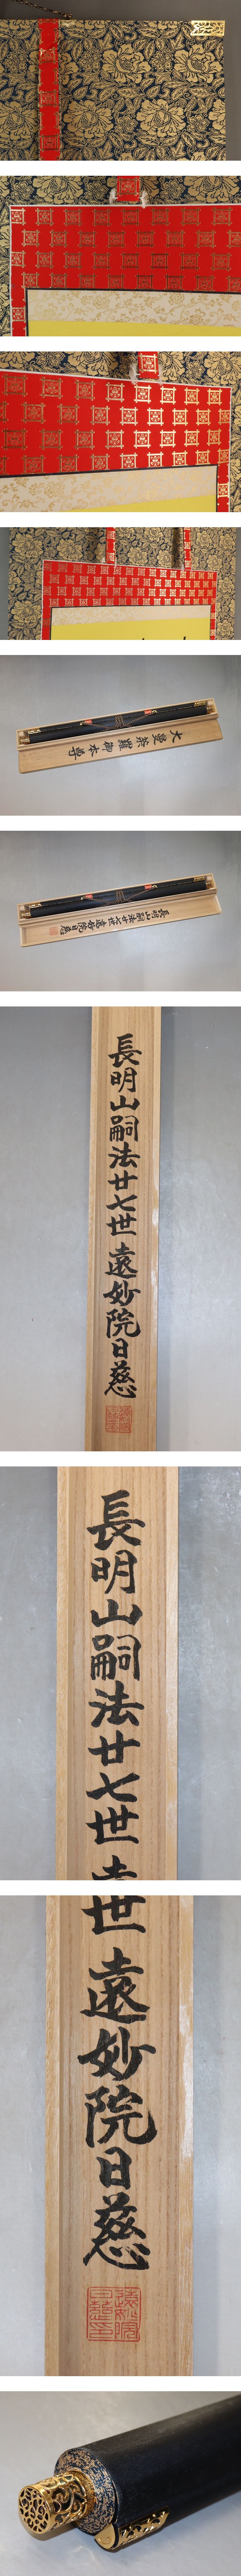 大曼荼羅御本尊
長明山嗣法廿七世遠妙院日慈
長明山嗣法廿七世遠妙院日慈
長明山嗣法廿七世
世遠妙院日慈
遠妙院
日慈印